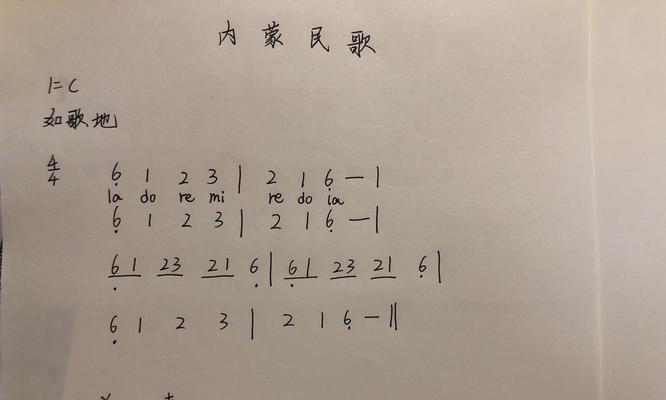 内蒙民歌
1=C
如歌地
4/4 6̣ 1 2 3 | 2 1 6̣ — |
la do re mi re do la
6̣ 1 2 3 | 2 1 6̣ — |
6̣1 23 21 6̣ | 6̣1 23 21 6̣ |
6̣ 1 2 3 | 2 1 6̣ — ‖